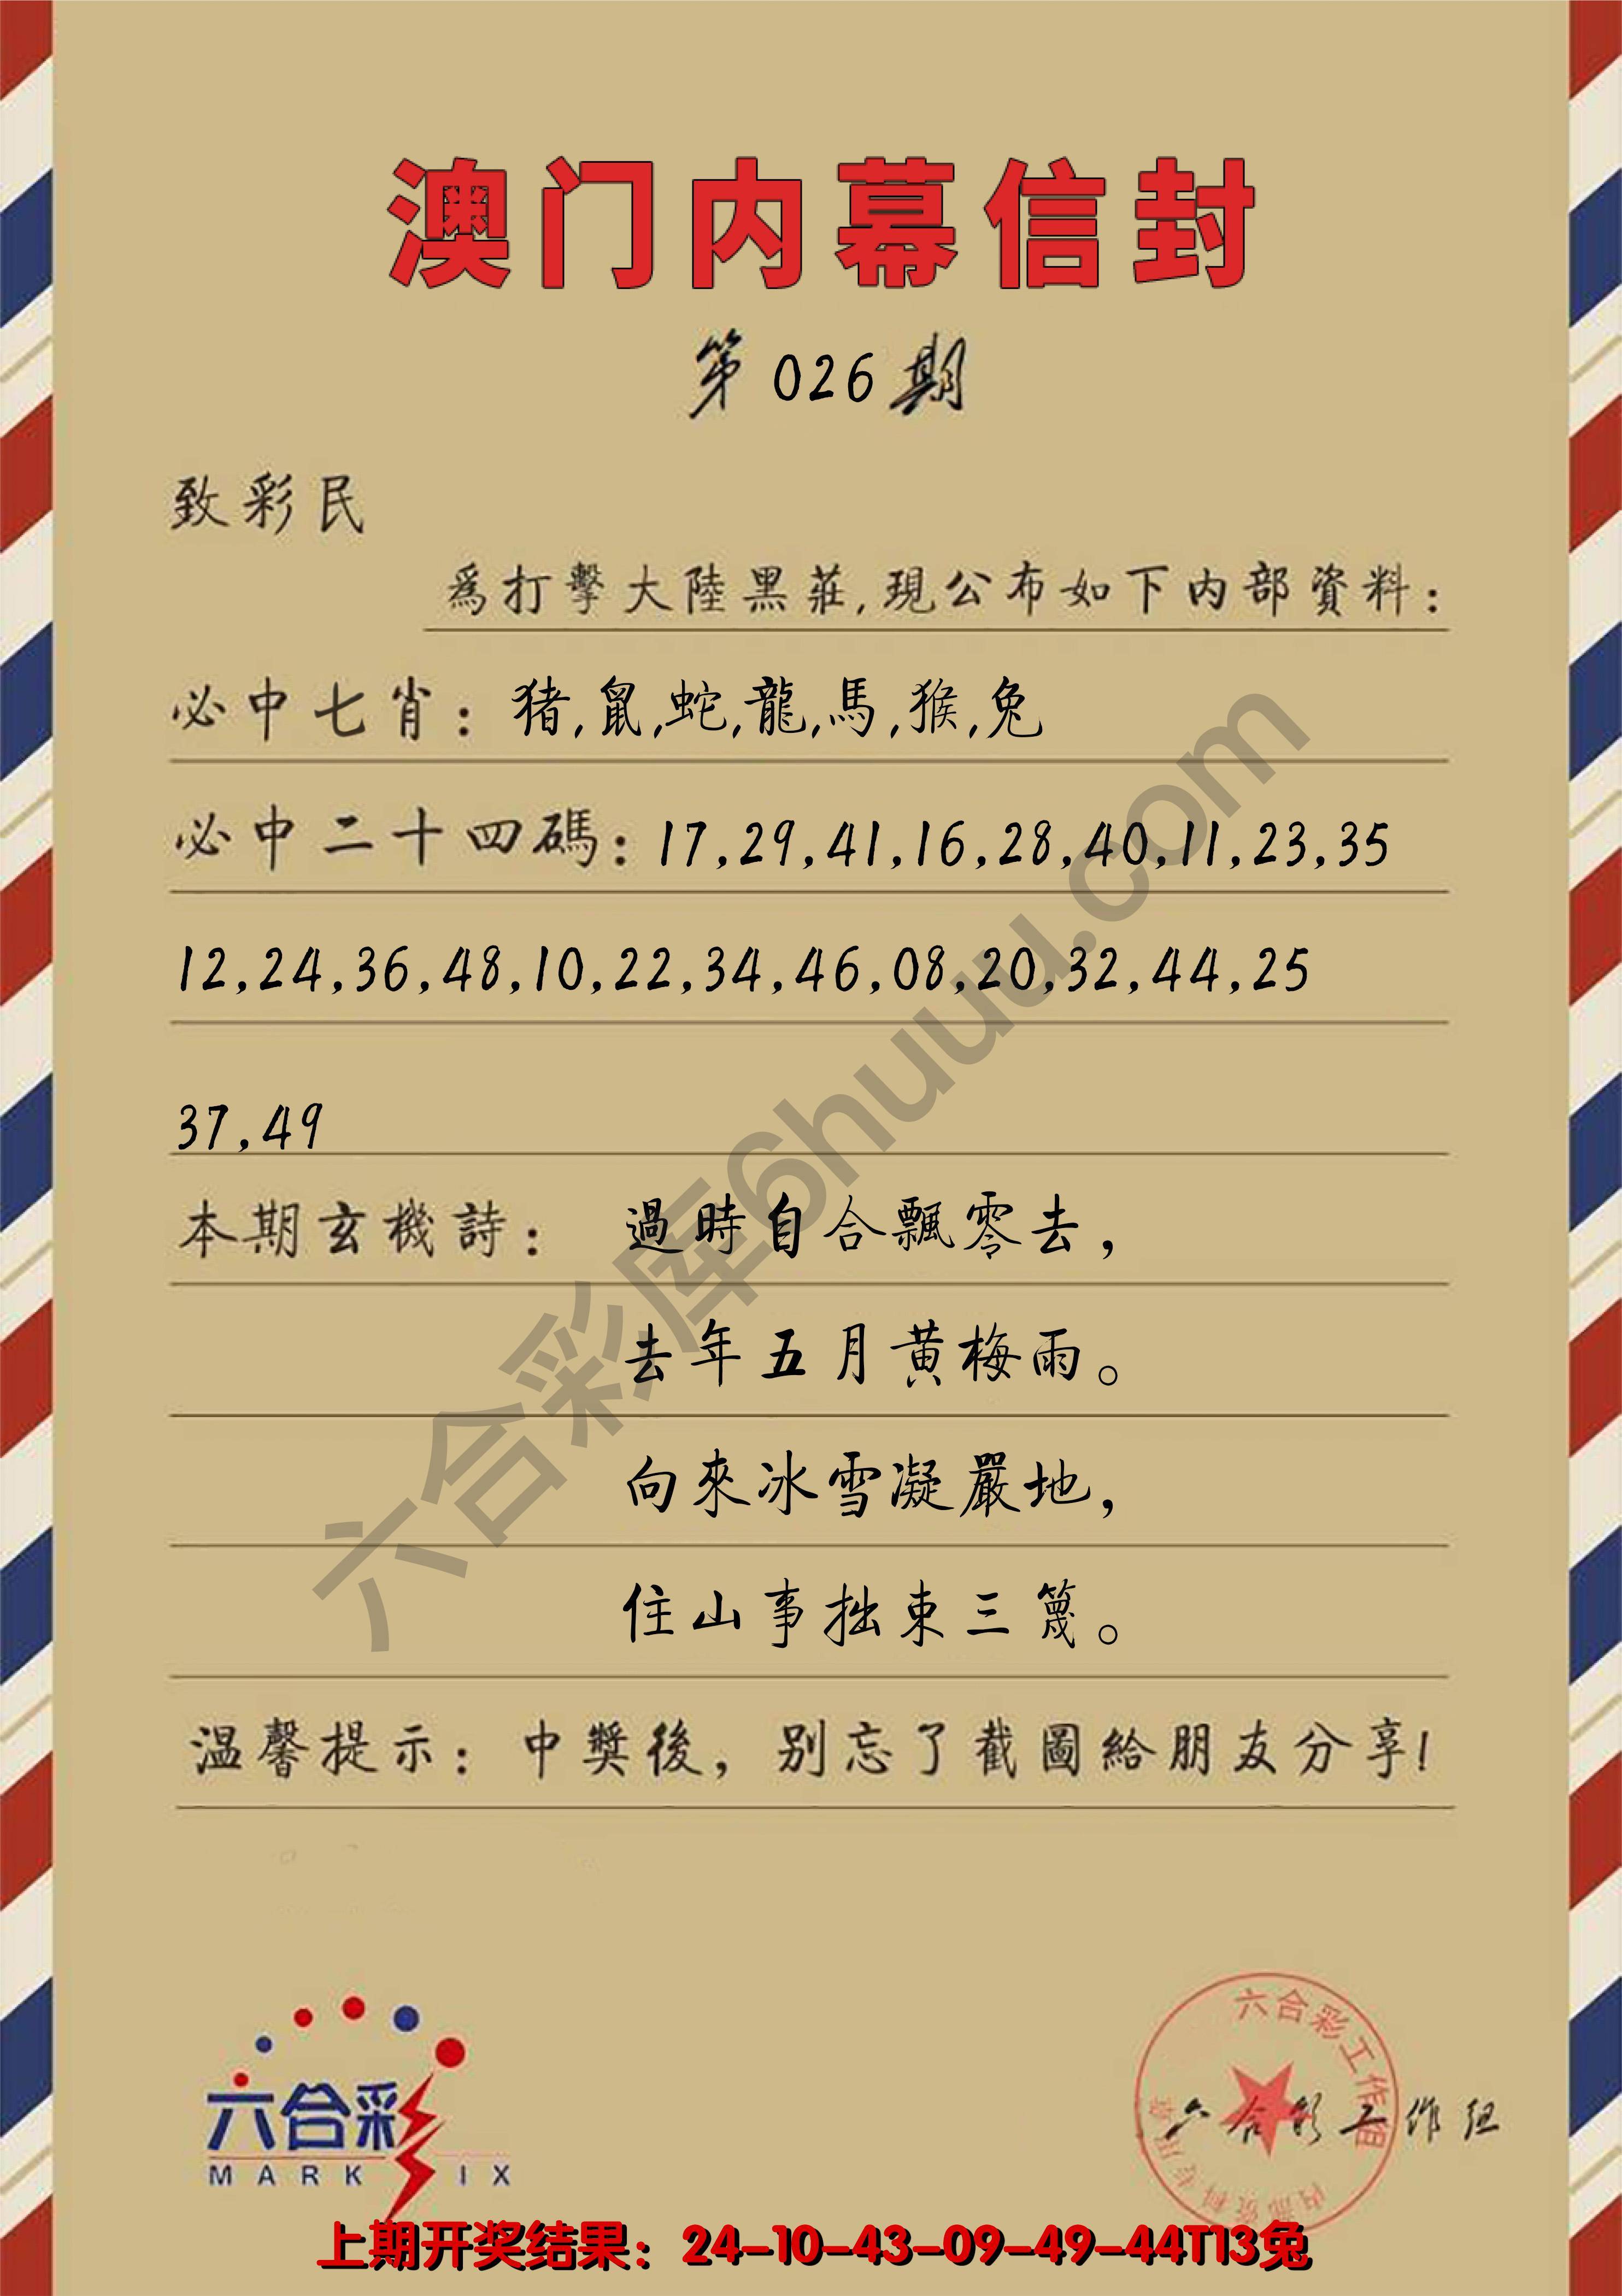 澳门内幕信封
第026期
致彩民
為打擊大陸黑莊,現公布如下内部資料:
必中七肖: 猪,鼠,蛇,龍,馬,猴,兔
必中二十四碼: 17,29,41,16,28,40,11,23,35
12,24,36,48,10,22,34,46,08,20,32,44,25
37,49
本期玄機詩: 過時自合飄零去,
去年五月黄梅雨。
向來冰雪凝嚴地,
住山事拙束三篾。
温馨提示: 中獎後, 别忘了截圖給朋友分享!
六合彩库6huuu.com
六合彩
MARK SIX
六合彩工作组
内部资料专用章
六合彩工作组
上期开奖结果: 24-10-43-09-49-44T13兔